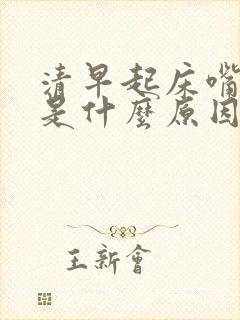 清早起床嘴
是什麽原因
王新會